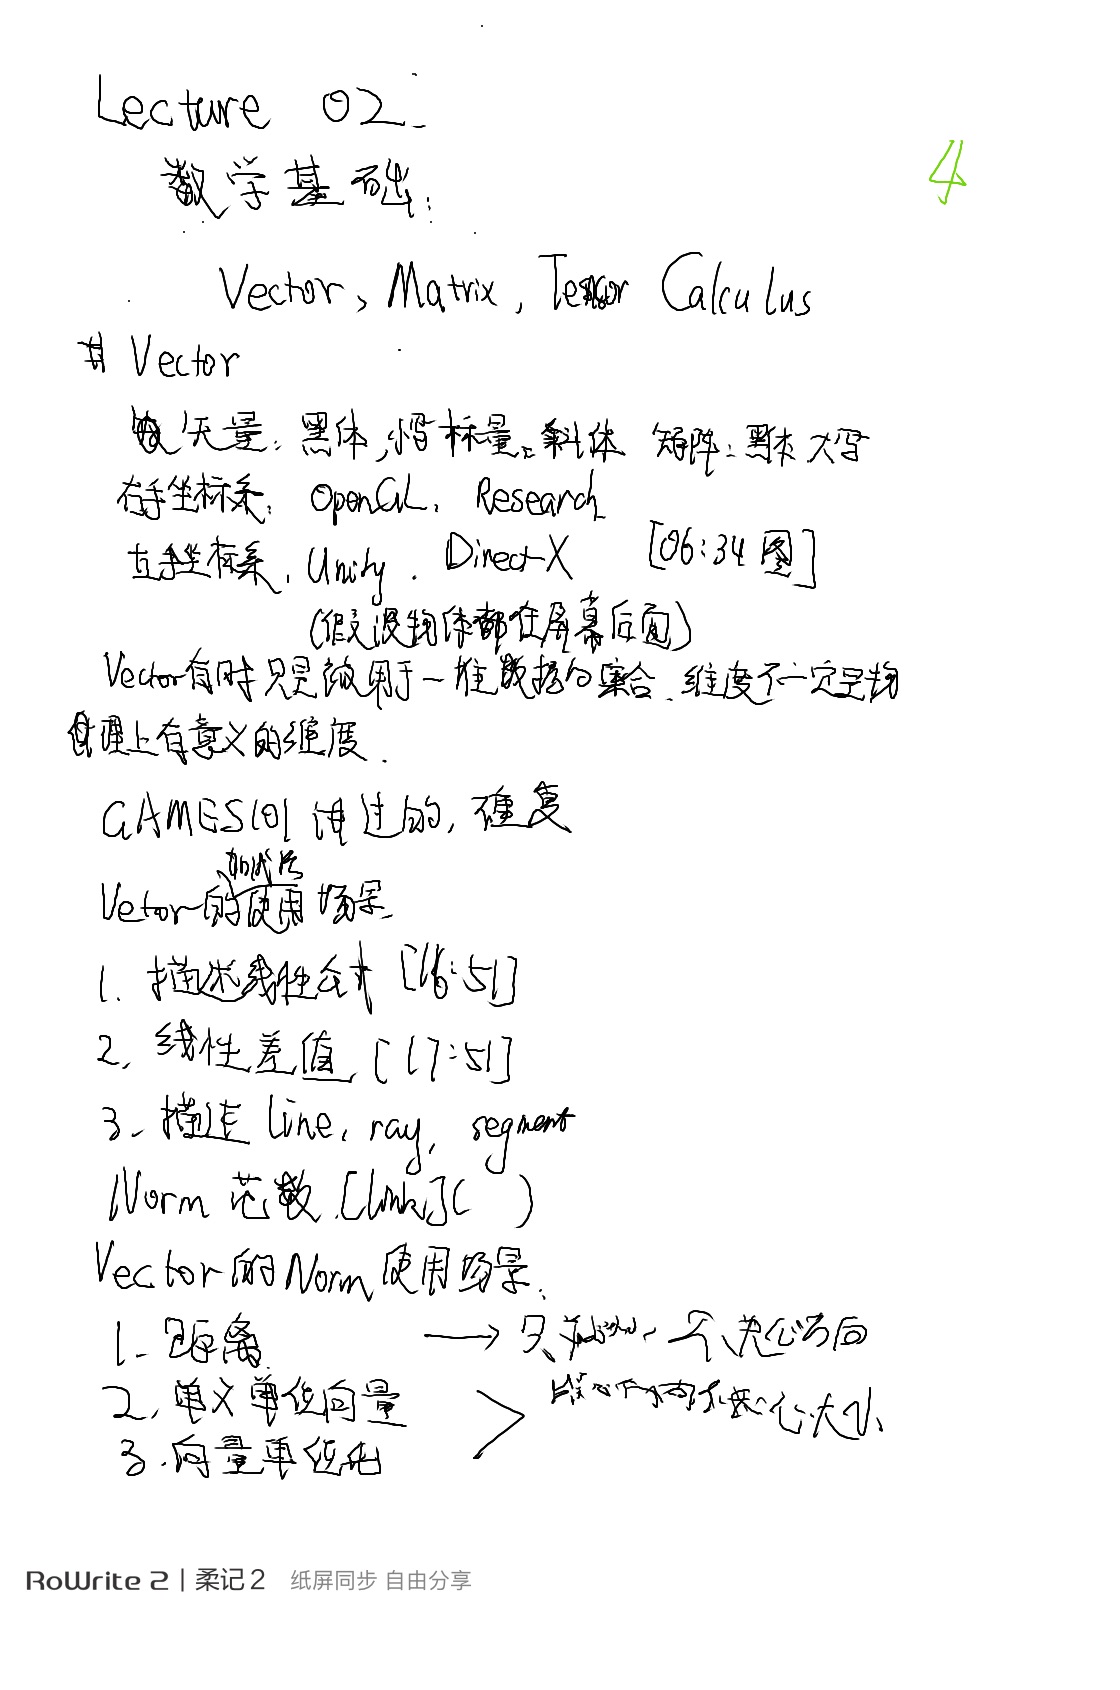 Lecture 02:
数学基础:
4
Vector, Matrix, Tensor Calculus
# Vector
矢量: 黑体, 标量: 斜体 矩阵: 黑体大写
右手坐标系: OpenGL, Research
左手坐标系: Unity, DirectX [06:34 图]
(假设物体都在屏幕后面)
Vector有时只是被用于一堆数据的集合, 维度不一定是物
理上有意义的维度.
GAMES101 讲过的, 重复
加减法
Vetor的使用场景
1. 描述线性公式 [16:51]
2. 线性差值 [17:51]
3. 描述 line, ray, segment
Norm 范数 [link]( )
Vector的Norm使用场景:
1. 距离 → 只 不关心方向
2. 单位向量 不关心大小
3. 向量单位化
RoWrite 2 | 柔记 2 纸屏同步 自由分享